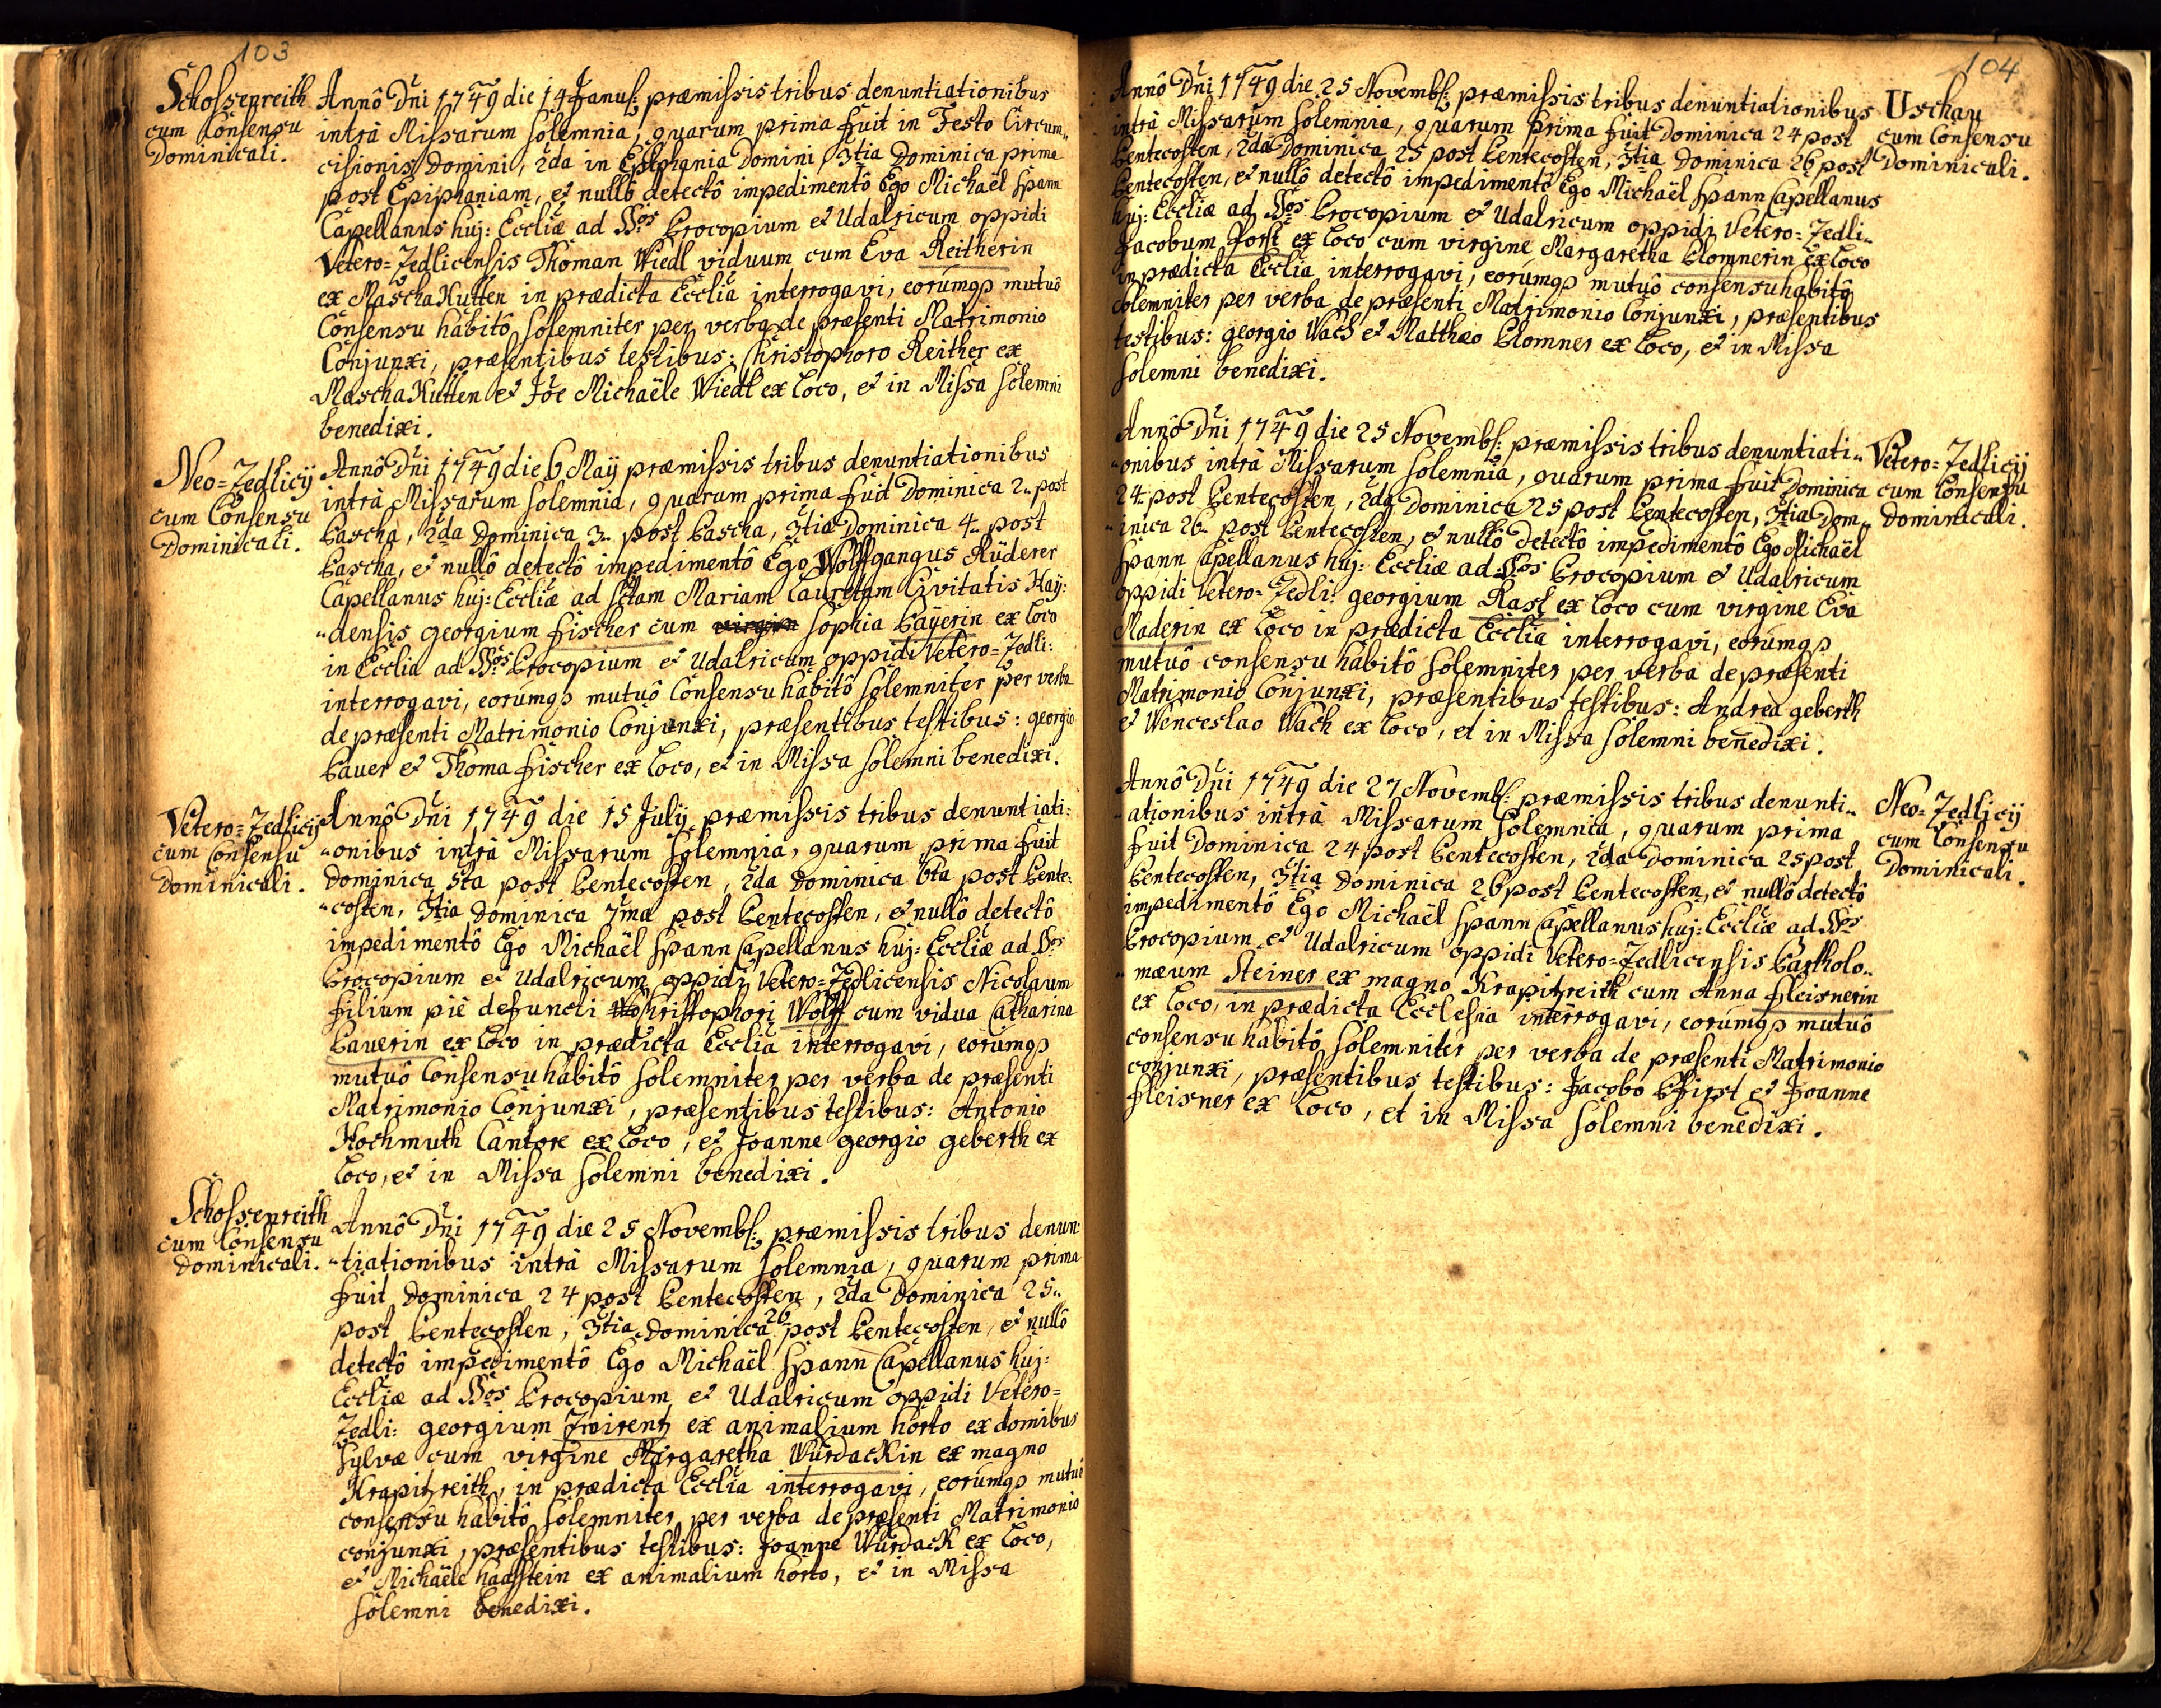 103
Schossenreith
cum Consensu
Dominicali.
Annô Dñi 1749 die 14 Januf: præmissis tribus denuntiationibus
intrà Missarum solemnia, quarum prima fuit in Festo Circum„
cisionis Domini, 2da in Epiphania Domini, 3tia Dominica prima
post Epiphaniam, et nullô detectô impedimentô Ego Michaël Spann
Capellanus huj: Eccliæ ad SSos Procopium et Udalricum oppidi
Vetero=Zedlicensis Thoman Wiedl viduum cum Eva Reitherin
ex MaschaKutten in prædicta Ecclia interrogavi, eorúmqs mutuô
Consensu habitô solemniter per verba de præsenti Matrimonio
Conjunxi, præsentibus testibus: Christophoro Reither ex
MaschaKutten et Jõe Michaële Wiedl ex loco, et in Missa solemni
benedixi.
Neo=Zedlicij
cum Consensu
Dominicali.
Annô Dñi 1749 die 6 Maij præmissis tribus denuntiationibus
intrà Missarum solemnia, quarum prima fuit Dominica 2„ post
Pascha, 2da Dominica 3„ post Pascha, 3tia Dominica 4„ post
Pascha, et nullô detectô impedimentô Ego Wolffgangus Rüderer
Capellanus huj: Eccliæ ad Sctam Mariam Lauretam Civitatis Hay:
„densis georgium fischer cum virgin Sophia Payerin ex loco
in Ecclia ad SSos Procopium et Udalricum oppidi Vetero=Zedli:
interrogavi, eorúmqs mutuô Consensu habitô solemniter per verba
de præsenti Matrimonio Conjunxi, præsentibus testibus: georgio
Pauer et Thoma fischer ex loco, et in Missa solemni benedixi.
Vetero=Zedlicij
cum Consensu
Dominicali.
Annô Dñi 1749 die 15 Julij præmissis tribus denuntiati:
„onibus intrà Missarum solemnia, quarum prima fuit
Dominica 5ta post Pentecosten, 2da Dominica 6ta post Pente:
„costen, 3tia Dominica 7ma post Pentecosten, et nullô detectô
impedimentô Ego Michaël Spann Capellanus huj: Eccliæ ad SSos
Procopium et Udalricum oppidi Vetero=Zedlicensis Nicolaum
filium piè defuncti Christophori Wolff cum vidua Catharina
Pauerin ex loco in prædicta Ecclia interrogavi, eorúmqs
mutuô Consensu habitô solemniter per verba de præsenti
Matrimonio Conjunxi, præsentibus testibus: Antonio
Hochmuth Cantore ex loco, et Joanne georgio geberth ex
loco, et in Missa solemni benedixi.
Schossenreith
cum Consensu
Dominicali.
Annô Dñi 1749 die 25 Novembf: præmissis tribus denun:
„tiationibus intrà Missarum solemnia, quarum prima
fuit Dominica 24 post Pentecosten, 2da Dominica 25„
post Pentecosten, 3tia Dominica 26 post Pentecosten, et nullô
detectô impedimentô Ego Michaël Spann Capellanus huj:
Eccliæ ad SSos Procopium et Udalricum oppidi Vetero=
Zedli: georgium Zwirentz ex animalium horto ex domibus
Sylvæ cum virgine Margaretha WürdacKin ex magno
Krapitzreith, in prædicta Ecclia interrogavi, eorúmqs mutuô
consensu habitô solemniter per verba de præsenti Matrimonio
conjunxi, præsentibus testibus: Joanne WürdacK ex loco,
et Michaële haasstein ex animalium horto, et in Missa
solemni benedixi.
104
Annô Dñi 1749 die 25 Novembf: præmissis tribus denuntiationibus
intrà Missarum solemnia, quarum prima fuit Dominica 24 post
Pentecosten, 2da Dominica 25 post Pentecosten, 3tia Dominica 26 post
Pentecosten, et nullô detectô impedimentô Ego Michaël Spann Capellanus
huj: Eccliæ ad SSos Procopium et Udalricum oppidi Vetero=Zedli„
Jacobum forst ex loco cum virgine Margaretha Plomnerin ex loco
in prædicta Ecclia interrogavi, eorúmqs mutuô consensu habitô
solemniter per verba de præsenti Matrimonio Conjunxi, præsentibus
testibus: georgio Wach et Matthæo Plomner ex loco, et in Missa
solemni benedixi.
Uschau
cum Consensu
Dominicali.
Annô Dñi 1749 die 25 Novembf: præmissis tribus denuntiati„
„onibus intrà Missarum solemnia, quarum prima fuit Dominica
24 post Pentecosten, 2da Dominica 25 post Pentecosten, 3tia Dom„
„inica 26 post Pentecosten, et nullô detectô impedimentô Ego Michaël
Spann Capellanus huj: Eccliæ ad SSos Procopium et Udalricum
oppidi Vetero=Zedli: georgium Rasl ex loco cum virgine Eva
Maderin ex loco in prædicta Ecclia interrogavi, eorúmqs
mutuô consensu habitô solemniter per verba de præsenti
Matrimonio Conjunxi, præsentibus testibus: Andrea geberth
et Wenceslao Wach ex loco, et in Missa solemni benedixi.
Vetero=Zedlicij
cum Consensu
Dominicali.
Annô Dñi 1749 die 27 Novembf: præmissis tribus denunti„
„ationibus intrà Missarum solemnia, quarum prima
fuit Dominica 24 post Pentecosten, 2da Dominica 25 post
Pentecosten, 3tia Dominica 26 post Pentecosten, et nullô detectô
impedimentô Ego Michaël Spann Capellanus huj: Eccliæ ad SSos
Procopium et Udalricum oppidi Vetero=Zedlicensis Bartholo„
„mæum Steiner ex magno Krapitzreith cum Anna fleisnerin
ex loco, in prædicta Ecclesia interrogavi, eorúmqs mutuô
consensu habitô solemniter per verba de præsenti Matrimonio
conjunxi, præsentibus testibus: Jacobo Pfirst et Joanne
fleisner ex loco, et in Missa solemni benedixi.
Neo=Zedlicij
cum Consensu
Dominicali.